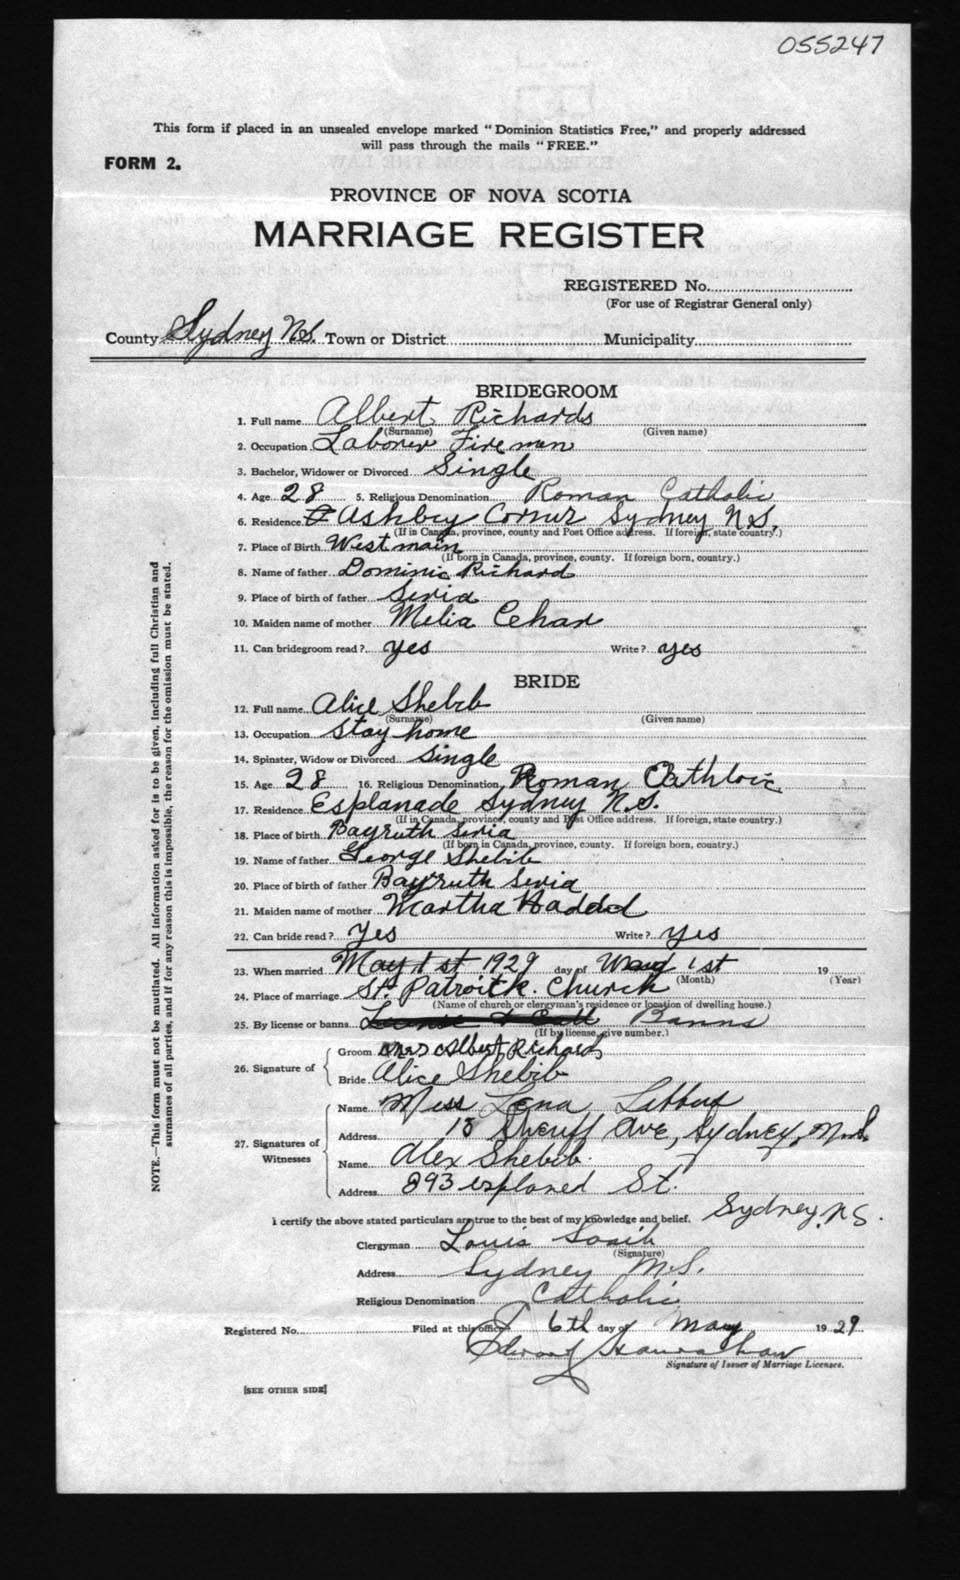 055247
This form if placed in an unsealed envelope marked "Dominion Statistics Free," and properly addressed
will pass through the mails "FREE."
FORM 2.
PROVINCE OF NOVA SCOTIA
MARRIAGE REGISTER
REGISTERED No.
(For use of Registrar General only)
County Sydney N.S. Town or District Municipality
BRIDEGROOM
1. Full name Albert Richards
(Surname) (Given name)
2. Occupation Laborer Fireman
3. Bachelor, Widower or Divorced Single
4. Age 28 5. Religious Denomination Roman Catholic
6. Residence Ashbey Corner Sydney N.S.
(If in Canada, province, county and Post Office address. If foreign, state country.)
7. Place of Birth West main
(If born in Canada, province, county. If foreign born, country.)
8. Name of father Dominic Richard
9. Place of birth of father Siria
10. Maiden name of mother Melia
11. Can bridegroom read? yes Write? yes
BRIDE
12. Full name Alice Shebib
(Surname) (Given name)
13. Occupation Stay home
14. Spinster, Widow or Divorced Single
15. Age 28 16. Religious Denomination Roman Cathloic
17. Residence Esplanade Sydney N.S.
(If in Canada, province, county and Post Office address. If foreign, state country.)
18. Place of birth Bayruth Siria
(If born in Canada, province, county. If foreign born, country.)
19. Name of father George Shebib
20. Place of birth of father Bayruth Siria
21. Maiden name of mother Martha Haddad
22. Can bride read? Yes Write? yes
23. When married May 1st 1929 day of May 1st 19
(Month) (Year)
24. Place of marriage St. Patroick. Church
(Name of church or clergyman's residence or location of dwelling house.)
25. By license or banns Banns
(If by license, give number.)
26. Signature of
Groom Albert Richards
Bride Alice Shebib
27. Signatures of Witnesses
Name Miss Lena
Address 15 Sheriff Ave, Sydney, N.S.
Name Alex Shebib.
Address 893 esplaned St.
Sydney, N.S.
I certify the above stated particulars are true to the best of my knowledge and belief.
Clergyman Louis
(Signature)
Address Sydney N.S.
Religious Denomination Catholic
Registered No. Filed at this office 6th day of May 1929
Signature of Issuer of Marriage Licenses.
[SEE OTHER SIDE]
NOTE.—This form must not be mutilated. All information asked for is to be given, including full Christian and
surnames of all parties, and if for any reason this is impossible, the reason for the omission must be stated.